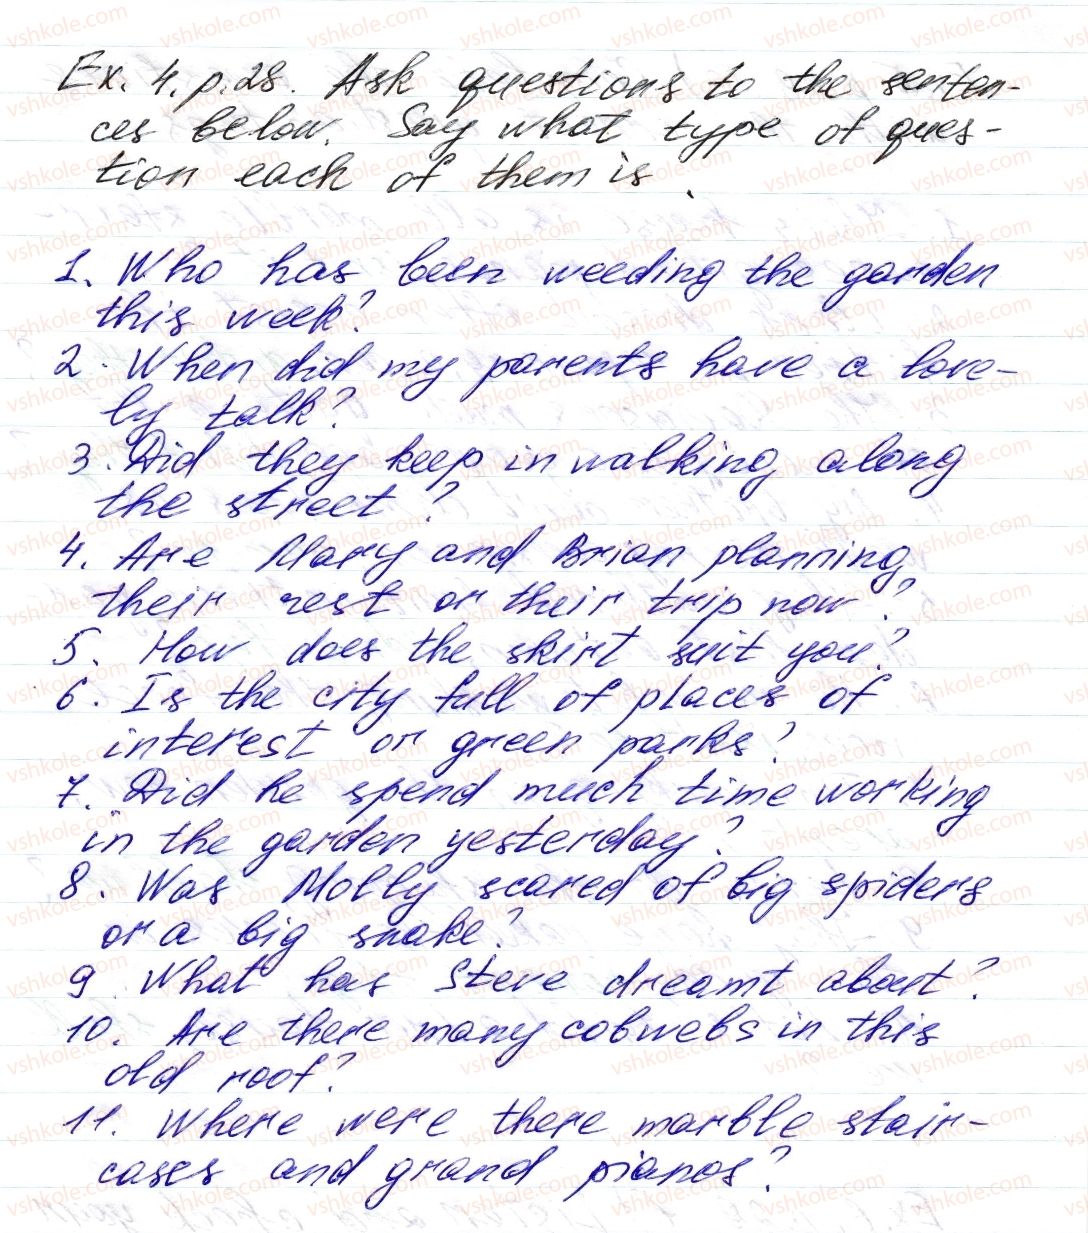 Ex. 4. p. 28. Ask questions to the senten-
ces below. Say what type of ques-
tion each of them is.
1. Who has been weeding the garden
this week?
2. When did my parents have a love-
ly talk?
3. Did they keep in walking along
the street?
4. Are Mary and Brian planning
their rest or their trip now?
5. How does the skirt suit you?
6. Is the city full of places of
interest or green parks?
7. Did he spend much time working
in the garden yesterday?
8. Was Molly scared of big spiders
or a big snake?
9. What has Steve dreamt about?
10. Are there many cobwebs in this
old roof?
11. Where were there marble stair-
cases and grand pianos?